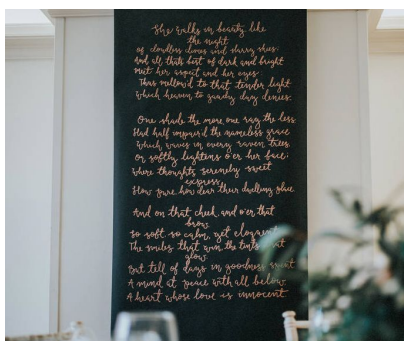 She walks in beauty, like
the night
of cloudless climes and starry skies:
And all thats best of dark and bright
Meet her aspect and her eyes:
Thus mellow'd to that tender light
Which heaven to gaudy day denies.
One shade the more one ray the less
Had half impair'd the nameless grace
Which waves in every raven tress,
Or softly lightens o'er her face;
where thoughts serenely sweet
express,
How pure how dear their dwelling place
And on that cheek, and o'er that
brow,
so soft so calm, yet eloquent
The smiles that win the tints
glow
But tell of days in goodness spent
A mind at peace with all below
A heart whose love is innocent.